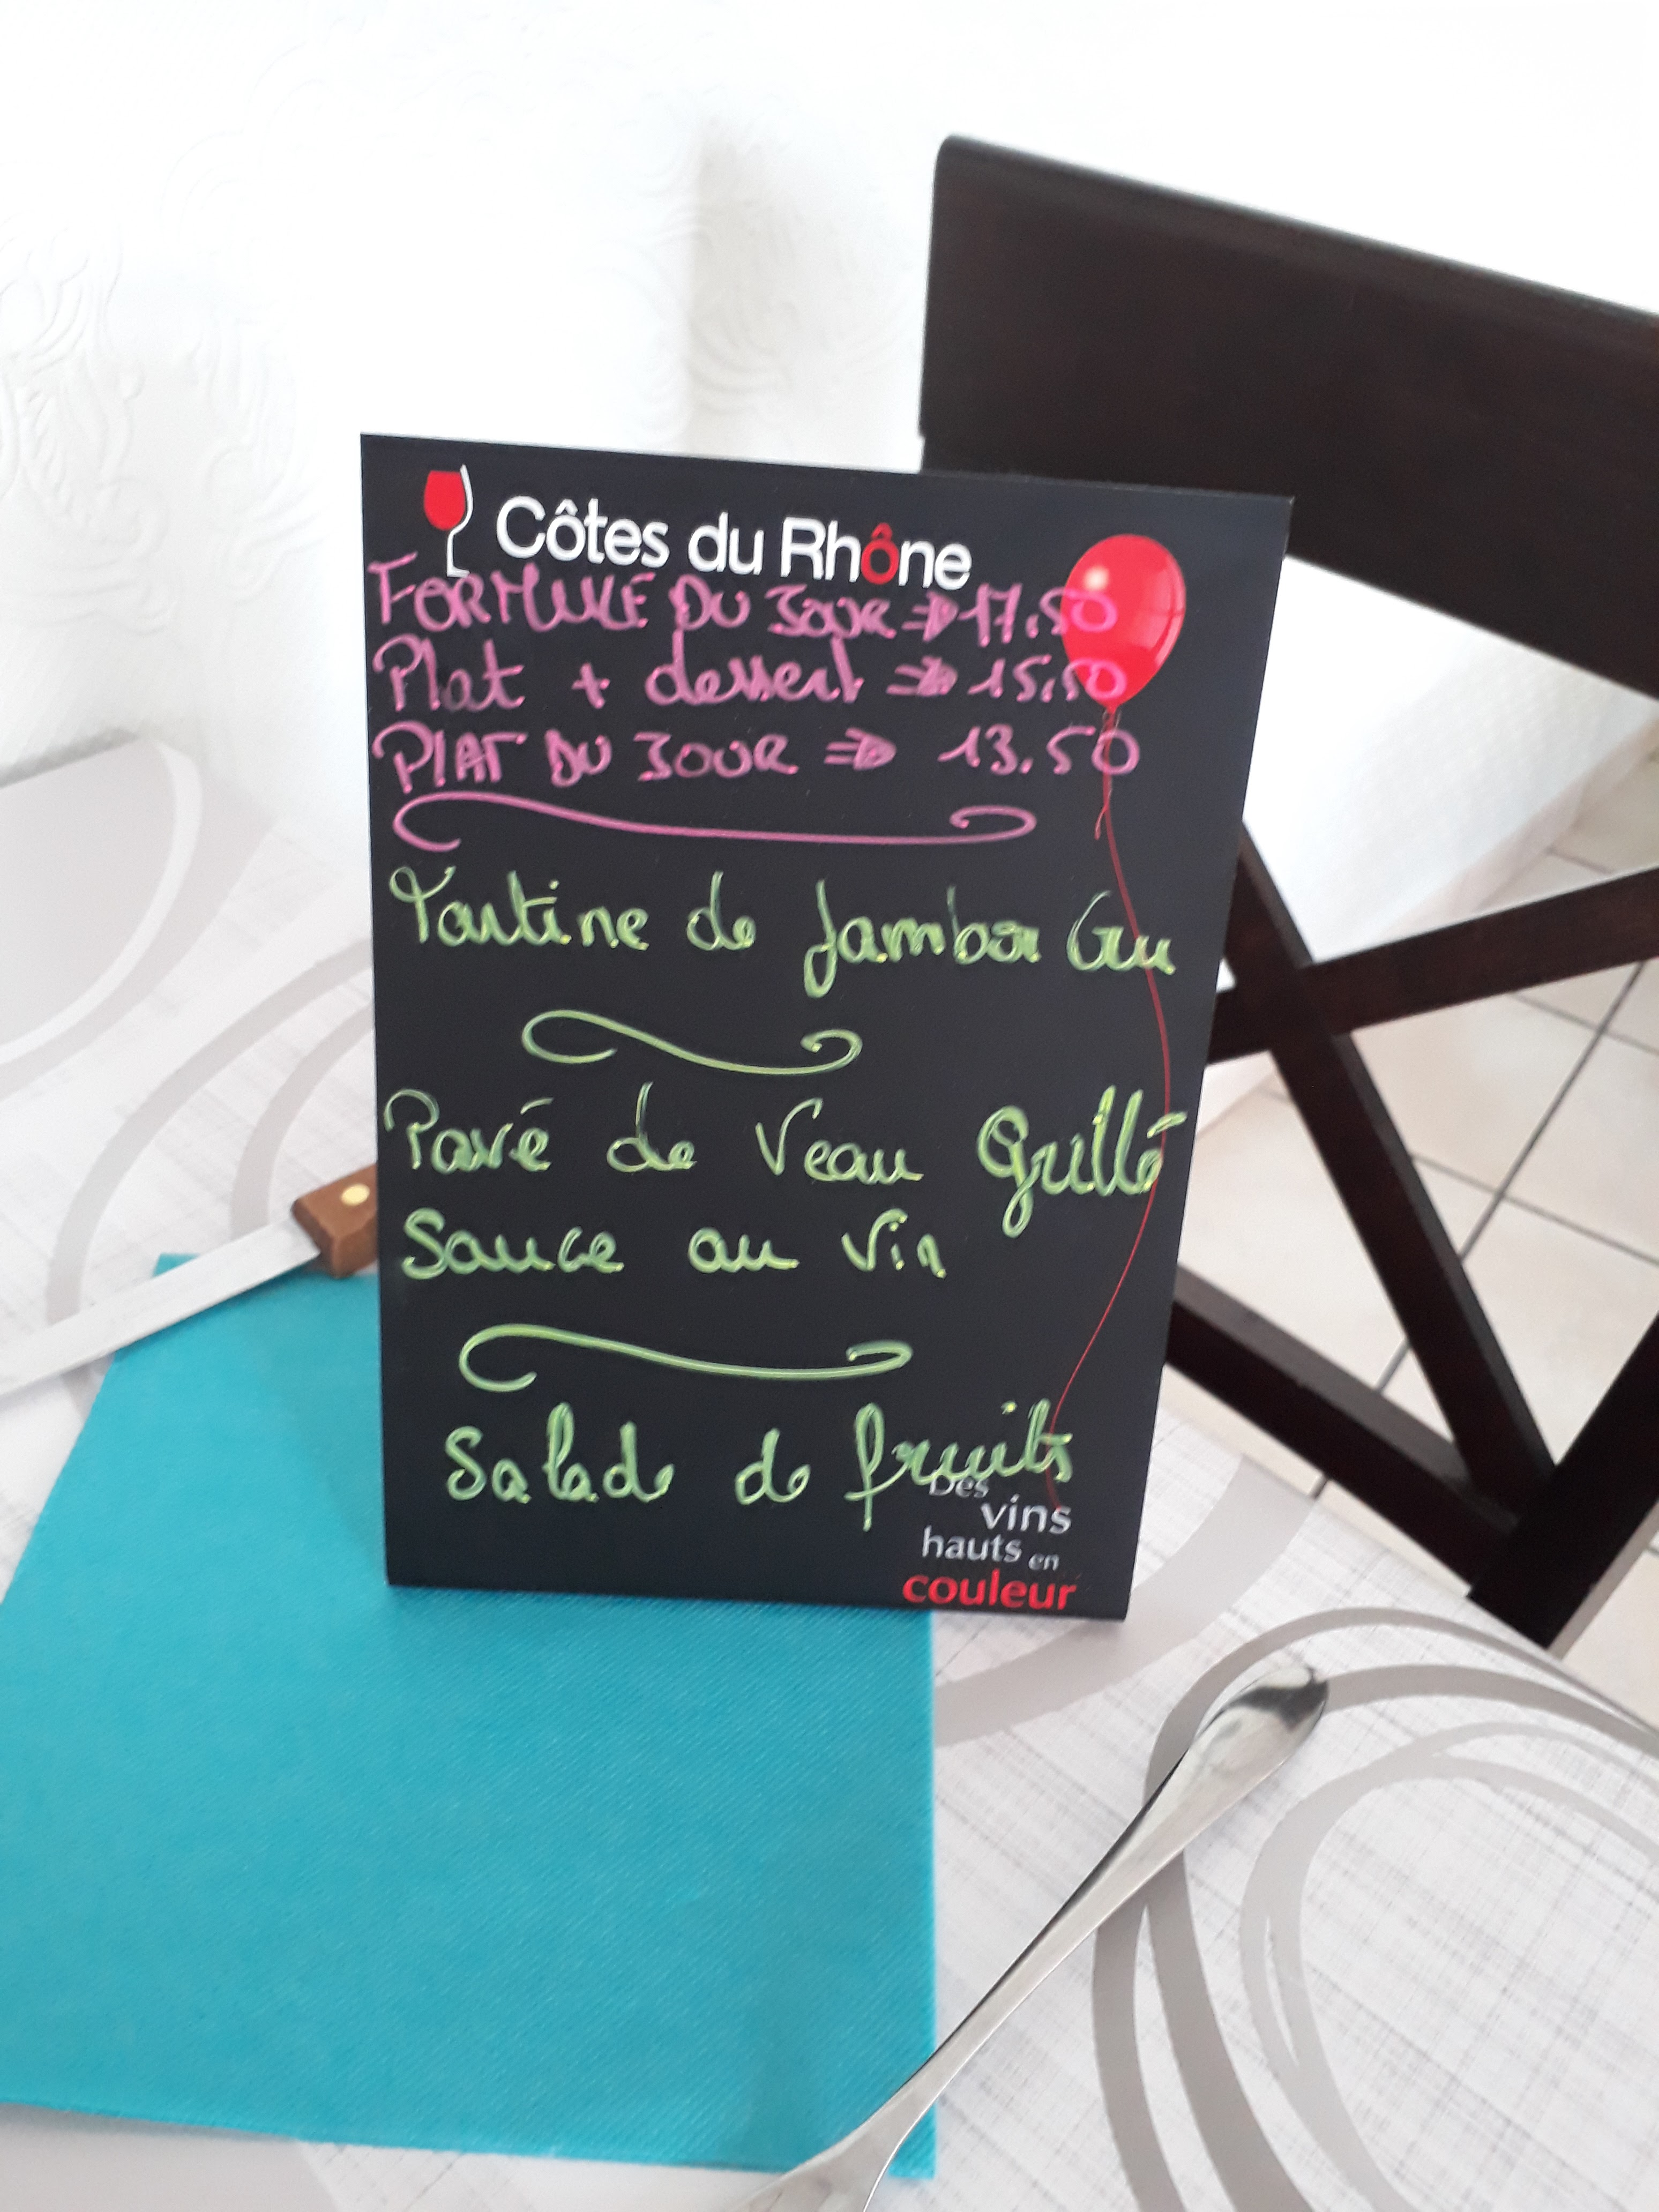 Côtes du Rhône
FORMULE DU JOUR => 17.50
Plat + dessert => 15.50
PLAT DU JOUR => 13.50
Tartine de Jambon Cru
Pavé de Veau Grillé
Sauce au Vin
Salade de fruits
Des
vins
hauts en
couleur